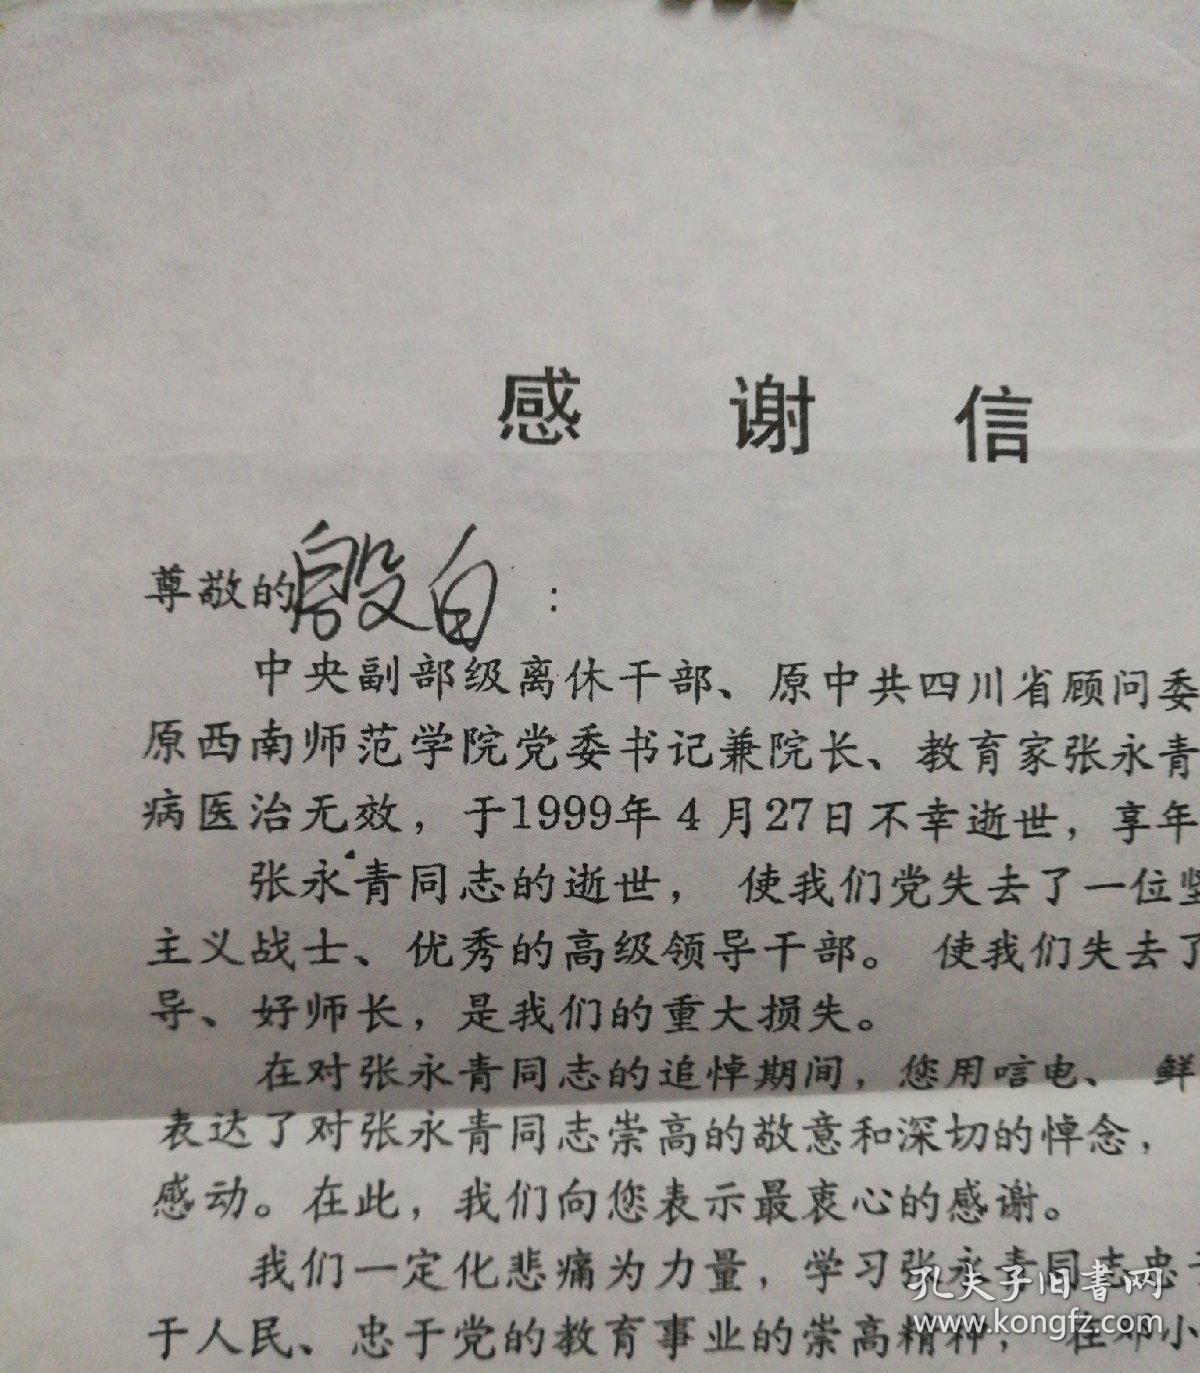 感谢信
尊敬的殷白：
中央副部级离休干部、原中共四川省顾问委
原西南师范学院党委书记兼院长、教育家张永青
病医治无效，于1999年4月27日不幸逝世，享年
张永青同志的逝世，使我们党失去了一位坚
主义战士、优秀的高级领导干部。使我们失去了
导、好师长，是我们的重大损失。
在对张永青同志的追悼期间，您用唁电、鲜
表达了对张永青同志崇高的敬意和深切的悼念，
感动。在此，我们向您表示最衷心的感谢。
我们一定化悲痛为力量，学习张永青同志忠于
于人民、忠于党的教育事业的崇高精神，在邓小
孔夫子旧书网
www.kongfz.com